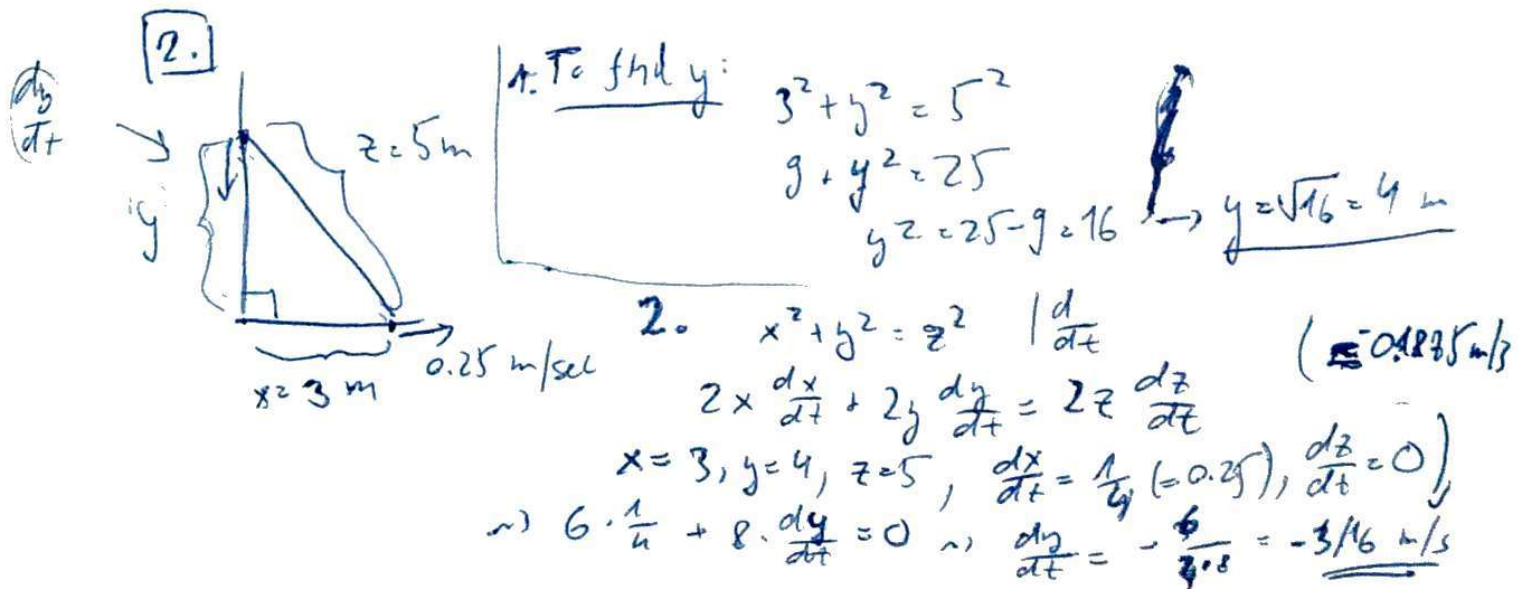 2.
dy/dt
y
z = 5 m
x = 3 m
0.25 m/sec
1. To find y:
3² + y² = 5²
9 + y² = 25
y² = 25 - 9 = 16 → y = √16 = 4 m
2. x² + y² = z² | d/dt
2x dx/dt + 2y dy/dt = 2z dz/dt
x = 3, y = 4, z = 5, dx/dt = 1/4 (= 0.25), dz/dt = 0
⇝ 6 · 1/4 + 8 · dy/dt = 0 ⇝ dy/dt = - 6/4·8 = -3/16 m/s
(= -0.1875 m/s)